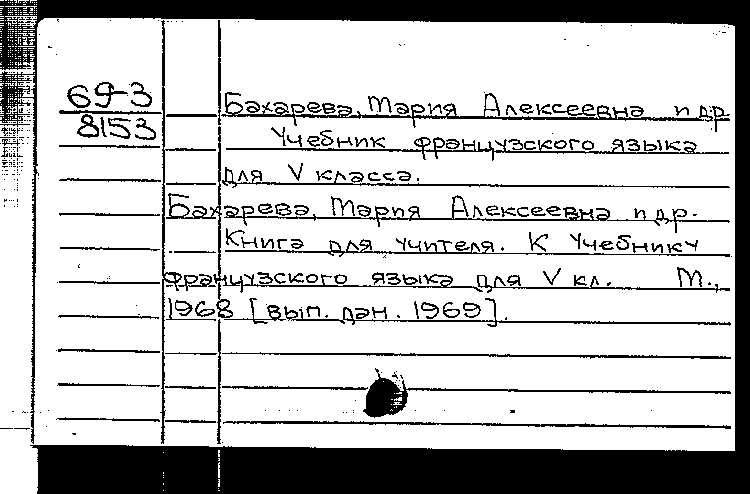 69-3
8153
Бахарева, Мария Алексеевна и др
Учебник французского языка
для V класса.
Бахарева, Мария Алексеевна и др.
Книга для учителя. К Учебнику
французского языка для V кл. М.,
1968 [вып. дан. 1969].